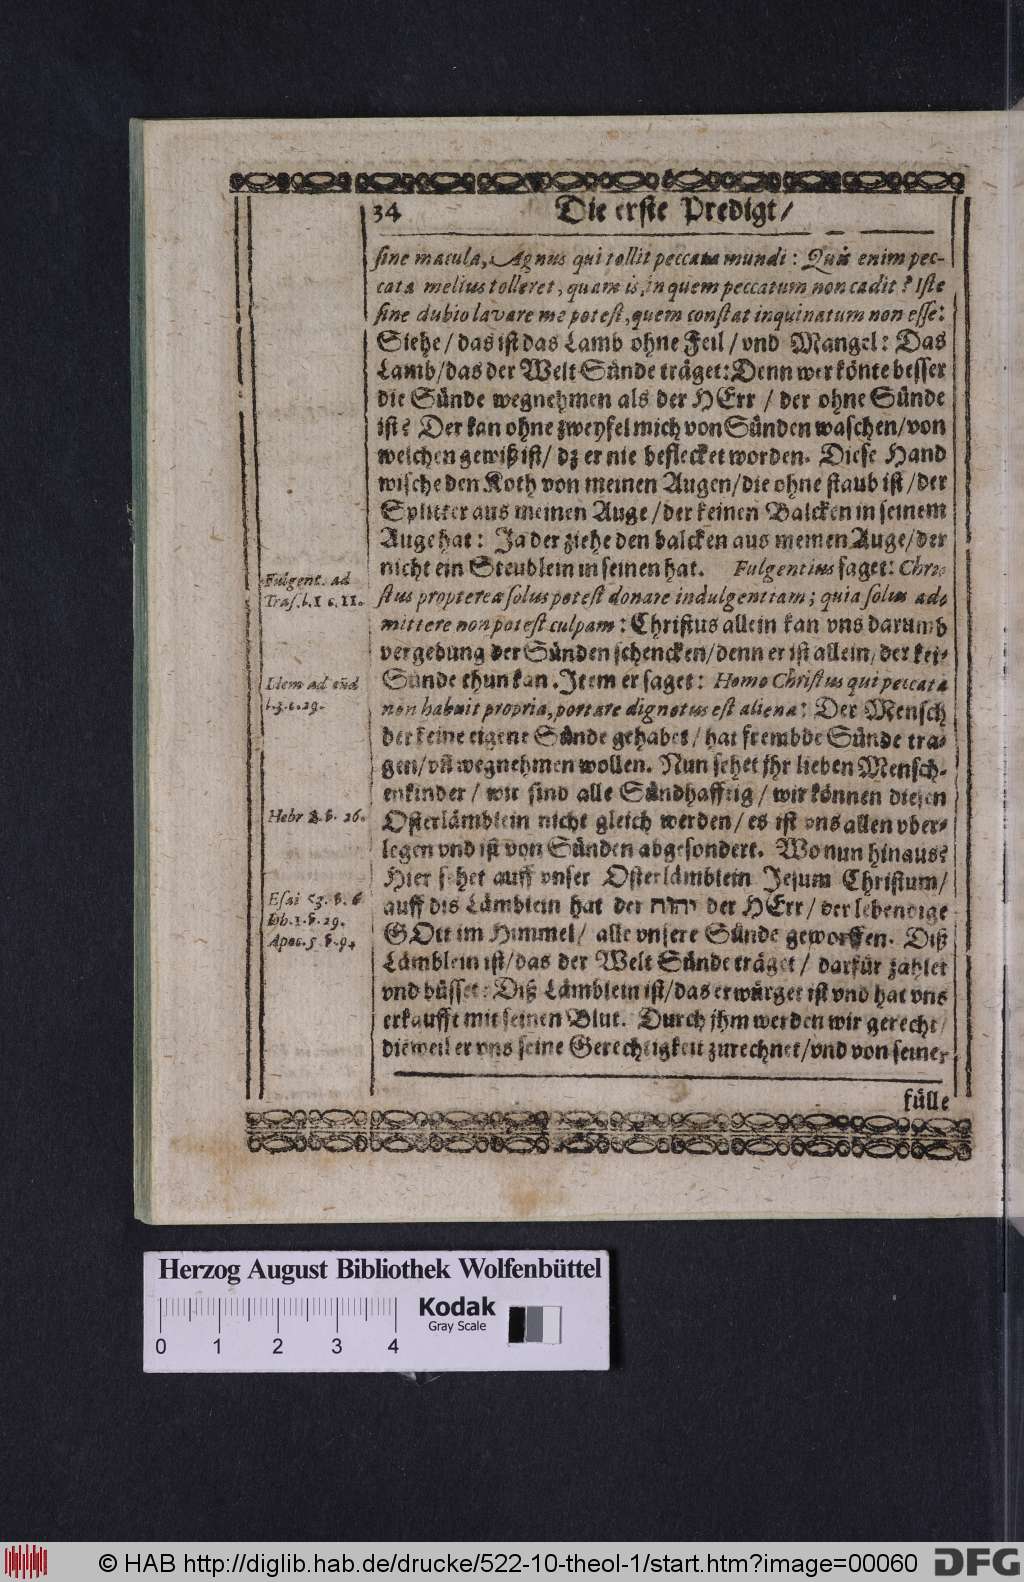 34 Die erste Predigt/
sine macula, Agnus qui tollit peccata mundi: Quis enim pec-
cata melius tolleret, quam is, in quem peccatum non cadit? Iste
sine dubio lavare me potest, quem constat inquinatum non esse:
Siehe/ das ist das Lamb ohne Feil/ vnd Mangel: Das
Lamb/ das der Welt Sünde träget: Denn wer könte besser
die Sünde wegnehmen als der HErr / der ohne Sünde
ist? Der kan ohne zweyfel mich von Sünden waschen/ von
welchen gewiß ist/ dz er nie beflecket worden. Diese Hand
wische den Koth von meinen Augen/ die ohne staub ist / der
Splitter aus meinen Auge / der keinen Balcken in seinem
Auge hat: Ja der ziehe den balcken aus meinen Auge/ der
nicht ein Steublein in seinen hat. Fulgentius saget: Chri-
stus propterea solus potest donare indulgentiam; quia solus ad-
mittere non potest culpam: Christus allein kan vns darumb
vergebung der Sünden schencken/ denn er ist allein/ der kei-
Sünde thun kan. Item er saget: Homo Christus qui peccata
non habuit propria, portare dignatus est aliena: Der Mensch
der keine eigene Sünde gehabet/ hat frembde Sünde tra-
gen/ vñ wegnehmen wollen. Nun sehet jhr lieben Mensch-
enkinder / wir sind alle Sündhafftig / wir können diesen
Osterlämblein nicht gleich werden/ es ist vns allen vber-
legen vnd ist von Sünden abgesondert. Wo nun hinaus?
Hier sehet auff vnser Osterlämblein Jesum Christum/
auff dis Lämblein hat der יהוה der HErr/ der lebendige
GOtt im Himmel/ alle vnsere Sünde geworffen. Diß
Lämblein ist/ das der Welt Sünde träget / darfür zahlet
vnd büsset: Diß Lämblein ist/ das erwürget ist vnd hat vns
erkaufft mit seinen Blut. Durch jhm werden wir gerecht/
dieweil er vns seine Gerechtigkeit zurechnet/ vnd von seiner
fülle
Fulgent. ad
Tras. l. 1 c. 11.
Idem ad eūd
l. 3. c. 29.
Hebr . . 26.
Esai 53. . 6
Ioh. 1. . 29.
Apoc. 5 . 9.
Herzog August Bibliothek Wolfenbüttel
Kodak
Gray Scale
0 1 2 3 4
© HAB http://diglib.hab.de/drucke/522-10-theol-1/start.htm?image=00060
DFG